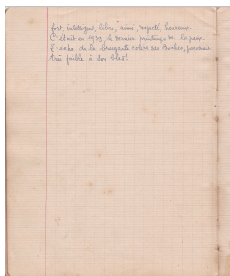 fort, intelligent, libre, aimé, respecté, heureux.
C'était en 1939, le dernier printemps de la paix.
L'écho de la bruyante colère des Boches, parvenait
très faible à nos